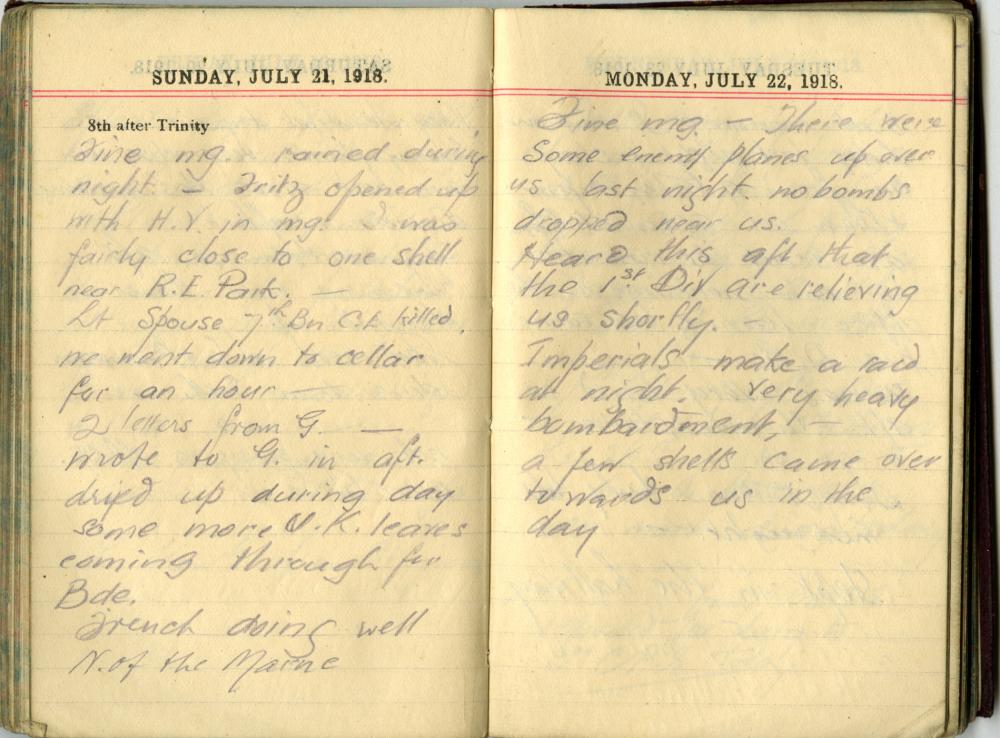 SUNDAY, JULY 21, 1918.
8th after Trinity
Fine mg. rained during
night. — Fritz opened up
with H.V. in mg. I was
fairly close to one shell
near R.E. Park. —
Lt Spouse 7th Bn C.E killed.
we went down to cellar
for an hour —
2 letters from G. —
wrote to G. in aft.
dried up during day
some more U.K. leaves
coming through for
Bde.
French doing well
N. of the Marne
MONDAY, JULY 22, 1918.
Fine mg. — There were
Some enemy planes up over
us last night. no bombs
dropped near us.
Heard this aft that
the 1st Div are relieving
us shortly. —
Imperials make a raid
at night. very heavy
bombardment, —
a few shells came over
towards us in the
day